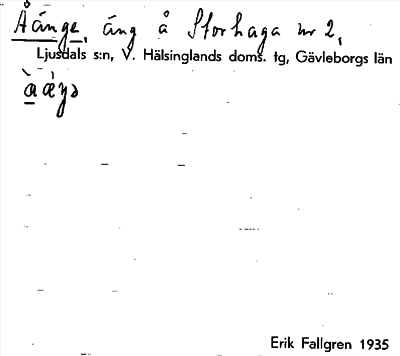 Åänge, äng å Storhaga nr 2,
Ljusdals s:n, V. Hälsinglands doms. tg, Gävleborgs län
Erik Fallgren 1935